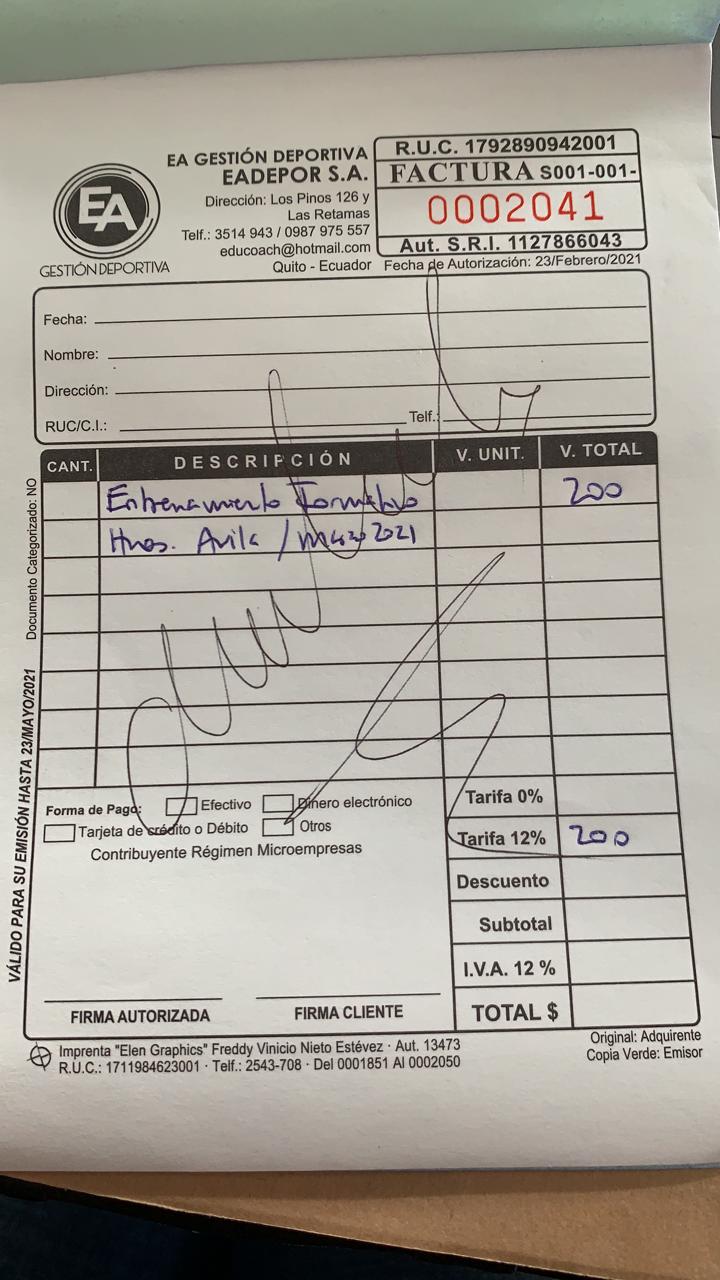 EA
GESTIÓN DEPORTIVA
EA GESTIÓN DEPORTIVA
EADEPOR S.A.
Dirección: Los Pinos 126 y
Las Retamas
Telf.: 3514 943 / 0987 975 557
educoach@hotmail.com
Quito - Ecuador
R.U.C. 1792890942001
FACTURA S001-001-
0002041
Aut. S.R.I. 1127866043
Fecha de Autorización: 23/Febrero/2021
Fecha:
Nombre:
Dirección:
RUC/C.I.: Telf.:
CANT. DESCRIPCIÓN V. UNIT. V. TOTAL
Entrenamiento Formativo 200
Hnos. Avila / Marzo 2021
Forma de Pago: Efectivo Dinero electrónico
Tarjeta de crédito o Débito Otros
Contribuyente Régimen Microempresas
Tarifa 0%
Tarifa 12% 200
Descuento
Subtotal
I.V.A. 12 %
TOTAL $
FIRMA AUTORIZADA FIRMA CLIENTE
VÁLIDO PARA SU EMISIÓN HASTA 23/MAYO/2021 Documento Categorizado: NO
Imprenta "Elen Graphics" Freddy Vinicio Nieto Estévez · Aut. 13473
R.U.C.: 1711984623001 · Telf.: 2543-708 · Del 0001851 Al 0002050
Original: Adquirente
Copia Verde: Emisor